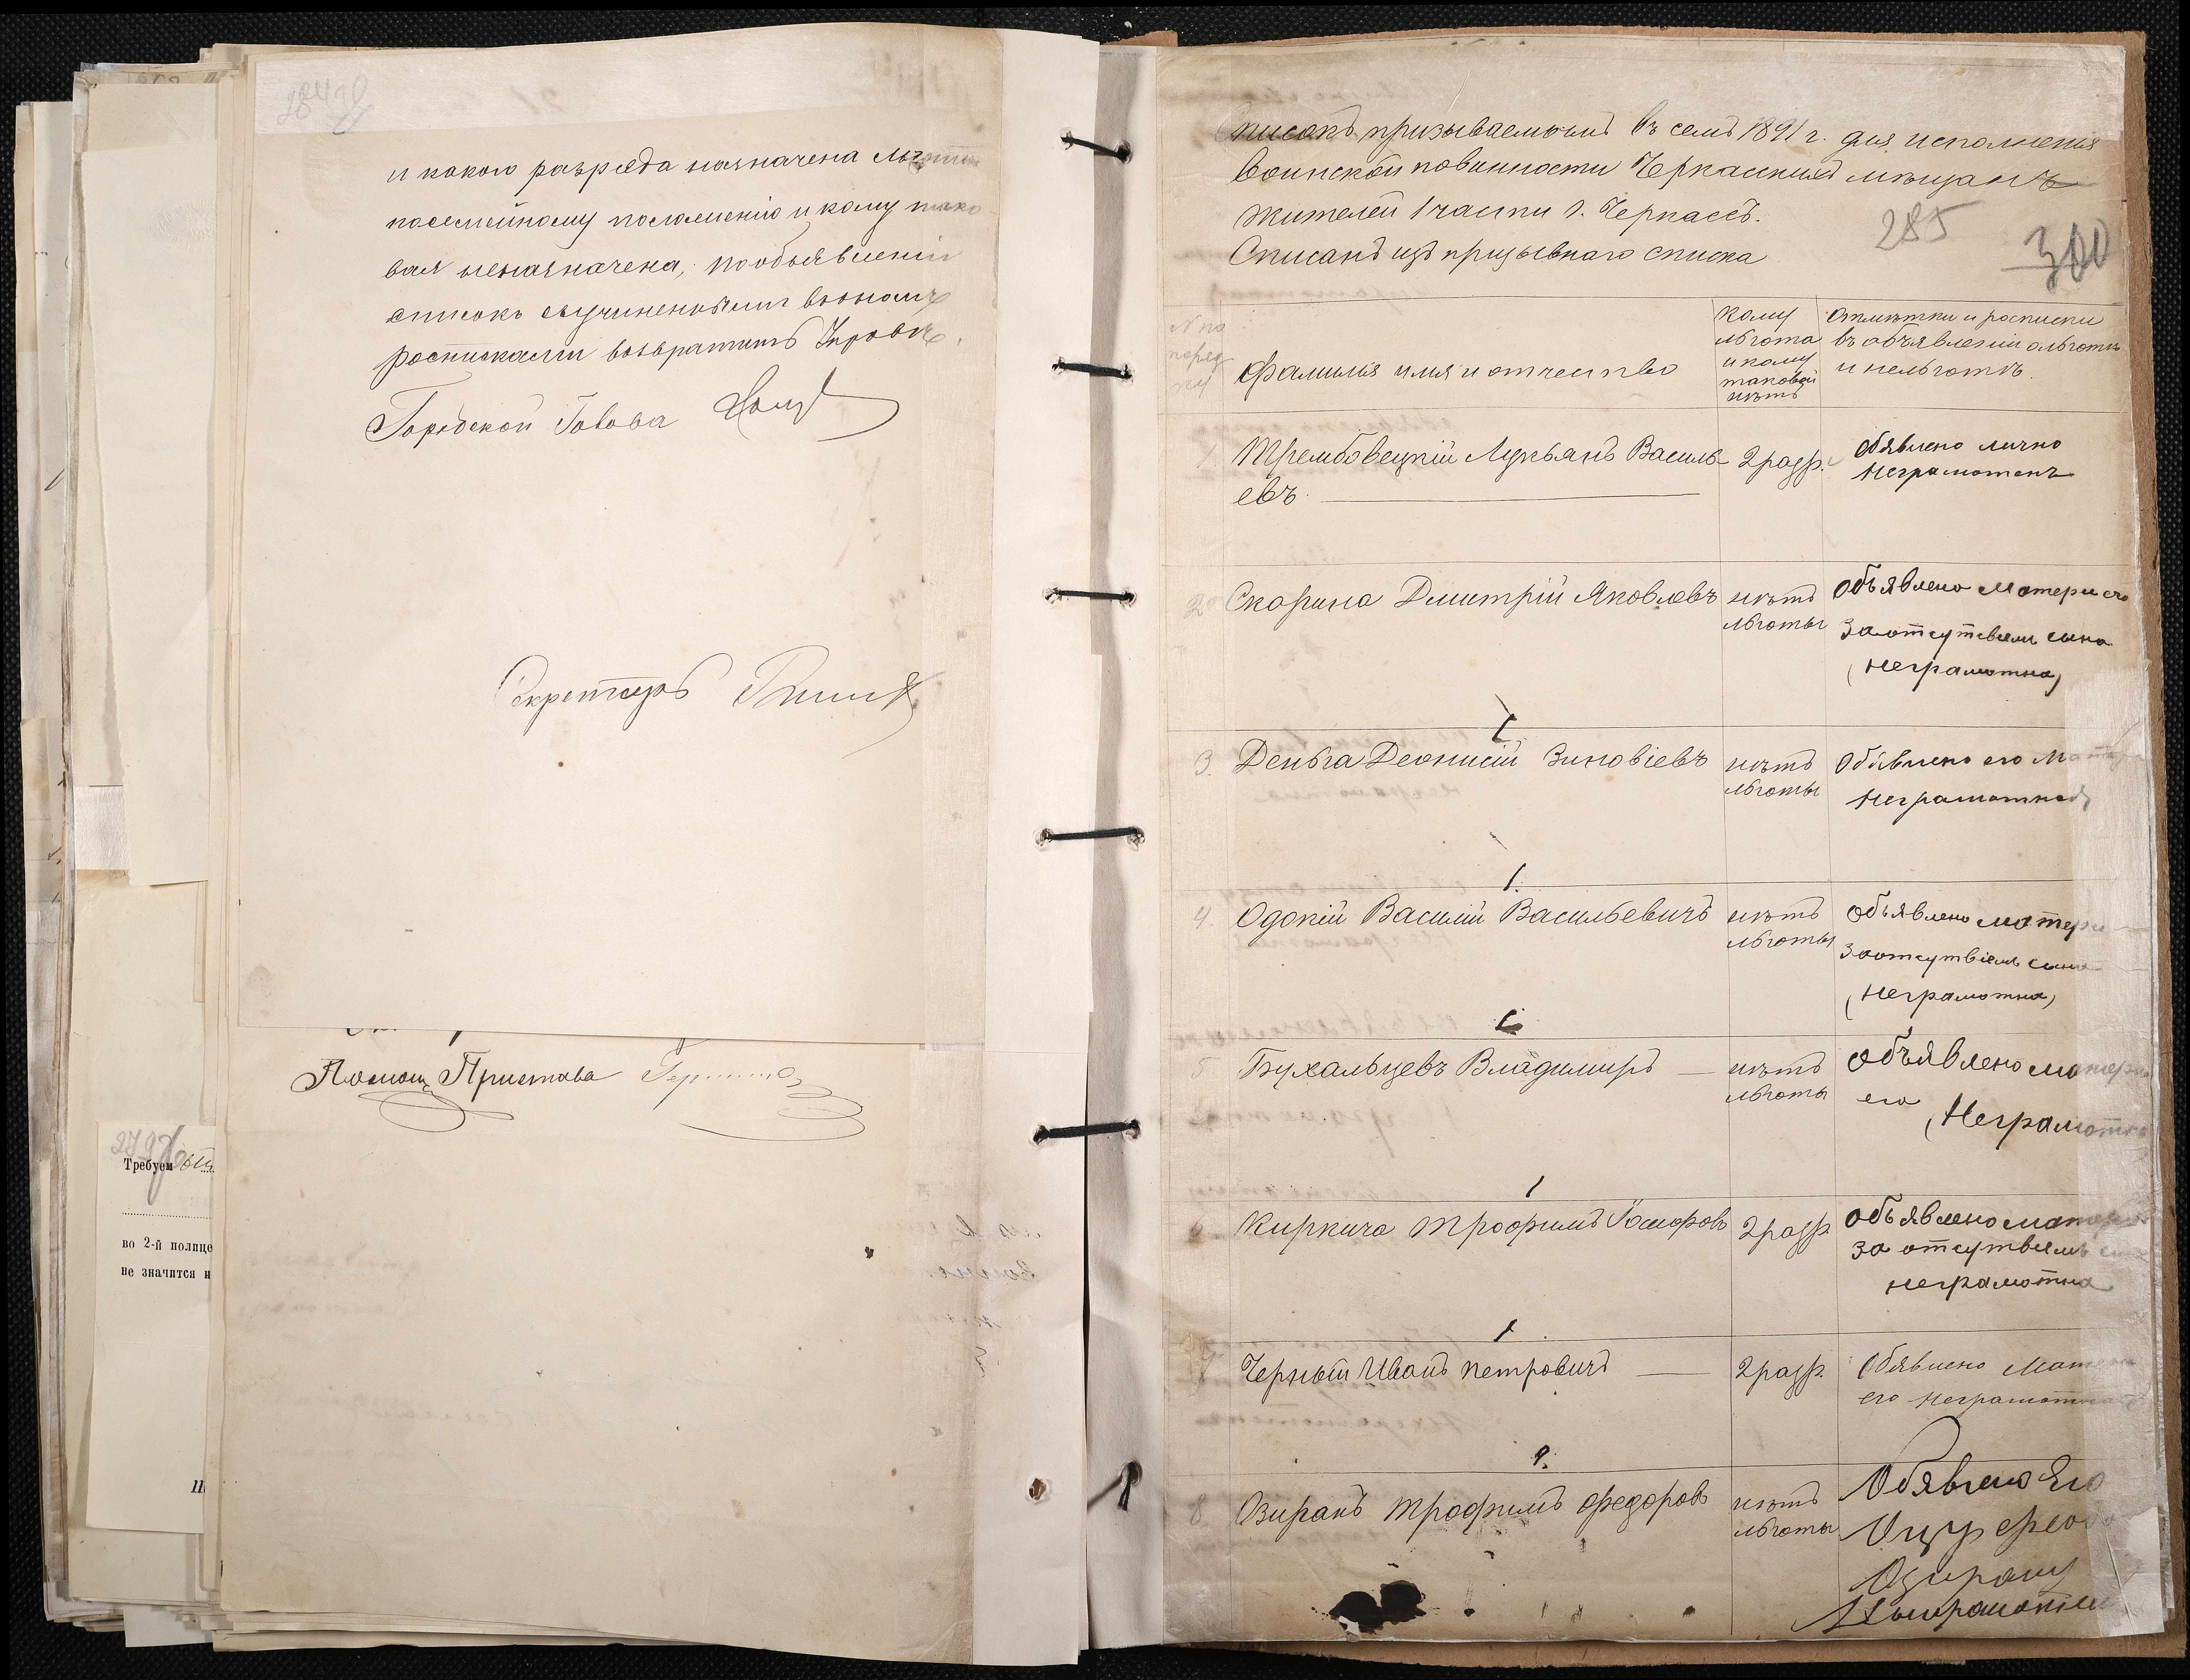 и какого разряда назначена льготы
посемейному положенію и кому тако
вая неназначена, пообъявленіи
списокъ съучиненными вономъ
росписками возвратить Управѣ.
Городской Голова
Секретарь
Помощ Пристава
279
Требуем
во 2-й полице
не значится н
Списокъ призываемымъ въ семъ 1891 г. для исполненія
воинской повинности Черкасскихъ мѣщанъ
жителей 1 части г. Черкассъ.
285
300
Списанъ изъ призывнаго списка
№ по
поряд
ку
Фамилія имя и отчество
Кому
льгота
и кому
таковой
нѣтъ
Отмѣтки и росписки
въ объявленіи ольготѣ
и нельготѣ.
1 Трембовецкій Лукьянъ Василь-
евъ.
2 разр.
Обявлено лично
Неграмотенъ
2 Скорина Дмитрій Яковлевъ
нѣтъ
льготы
Объявлено матери его
заотсутсвіем сына
(Неграмотна)
3. Деньга Деонисій Зиновіевъ
нѣтъ
льготы
Обявлено его Мат
Неграмотной
4. Одокій Василій Васильевичъ
нѣтъ
льготы
Объявлено матери
заотсутвіемъ сына
(Неграмотна)
5 Бухальцевъ Владимиръ —
нѣтъ
льготы
Объявлено матери
его
(Неграмотна
6 Киркича Трофимъ Іосифовъ
2 разр
Объявлено матери
за отсутвіемъ сына
неграмотна
7 Черный Иванъ Петровичъ —
2 разр.
Обявлено Матери
его Неграмотной
8 Озиранъ Трофимъ Федоровъ
нѣтъ
льготы
Обявлено Его
Оцу Федо
Озирану